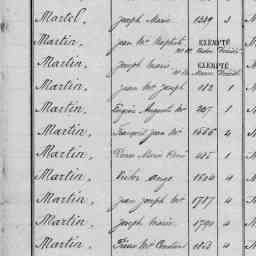 Martel, Joseph Marie 1239 3
Martin, Jean Mie Baptiste EXEMPTÉ
Martin, Joseph Marie EXEMPTÉ
Martin, Jean Mie Joseph 182 1
Martin, Eugène Auguste Mie 207 1
Martin, François Jean Mie 1686 4
Martin, Pierre Marie René 485 1
Martin, Victor Ange 1604 4
Martin, Jean Joseph Mie 1787 4
Martin, Joseph Marie 1790 4
Martin, Pierre Mie 1813 4